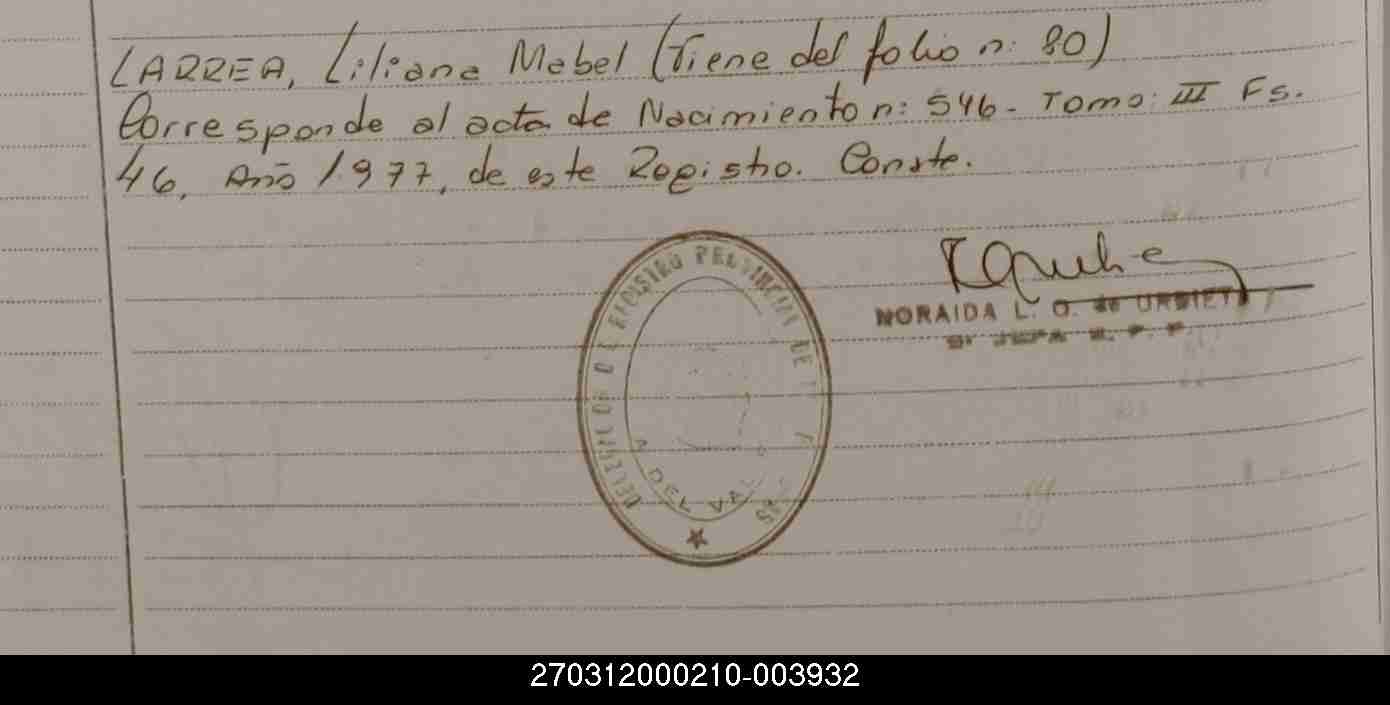 LARREA, Liliana Mabel (Viene del folio n: 80)
Corresponde al acta de Nacimiento n: 546- Tomo: III Fs.
46, Año 1977, de este Registro. Conste.
NORAIDA L. O. de URBIETA
DELEGACION DEL REGISTRO PROVINCIAL DE
DEL VAL
270312000210-003932